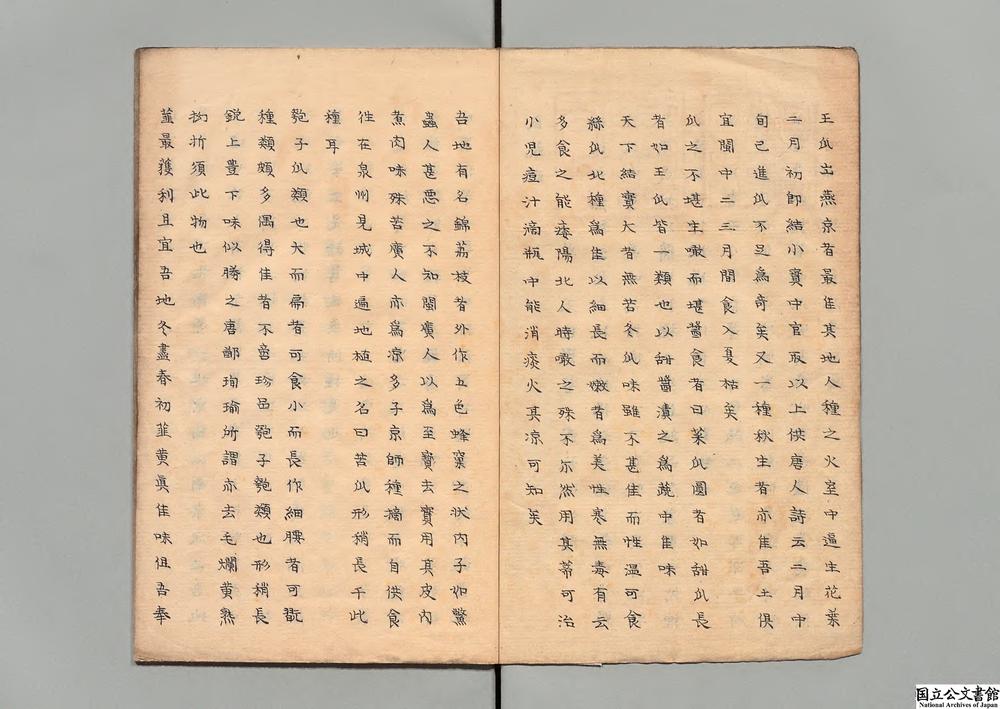 王瓜出燕京者最佳其地人種之火室中逼生花葉
二月初即結小實中官取以上供唐人詩云二月中
旬已進瓜不足為奇矣又一種秋生者亦佳吾土俱
宜閩中二三月間食入夏枯矣
瓜之不堪生噉而堪醬食者曰菜瓜圓者如甜瓜長
者如王瓜皆一類也以甜醬漬之為蔬中佳味
天下結實大者無若冬瓜味雖不甚佳而性溫可食
絲瓜北種為佳以細長而嫩者為美性寒無毒有云
多食之能痿陽北人時噉之殊不尔然用其蒂可治
小児痘汁滴瓶中能消痰火其凉可知矣
吾地有名錦荔枝者外作五色蜂窠之状内子如鱉
蟲人甚悪之不知閩廣人以為至寳去實用其皮肉
煮肉味殊苦廣人亦為凉多子京師種摘而自供食
性在泉州見城中遍地植之名曰苦瓜形稍長于此
種耳
匏子瓜類也大而扁者可食小而長作細腰者可翫
種類頗多偶得佳者不啻珍品匏子匏類也形稍長
銳上豊下味似勝之唐鄭珣瑜所謂亦去毛爛黄熟
拗折須此物也
韮最獲利且宜吾地冬盡春初韮黄真佳味但吾奉
国立公文書館
National Archives of Japan